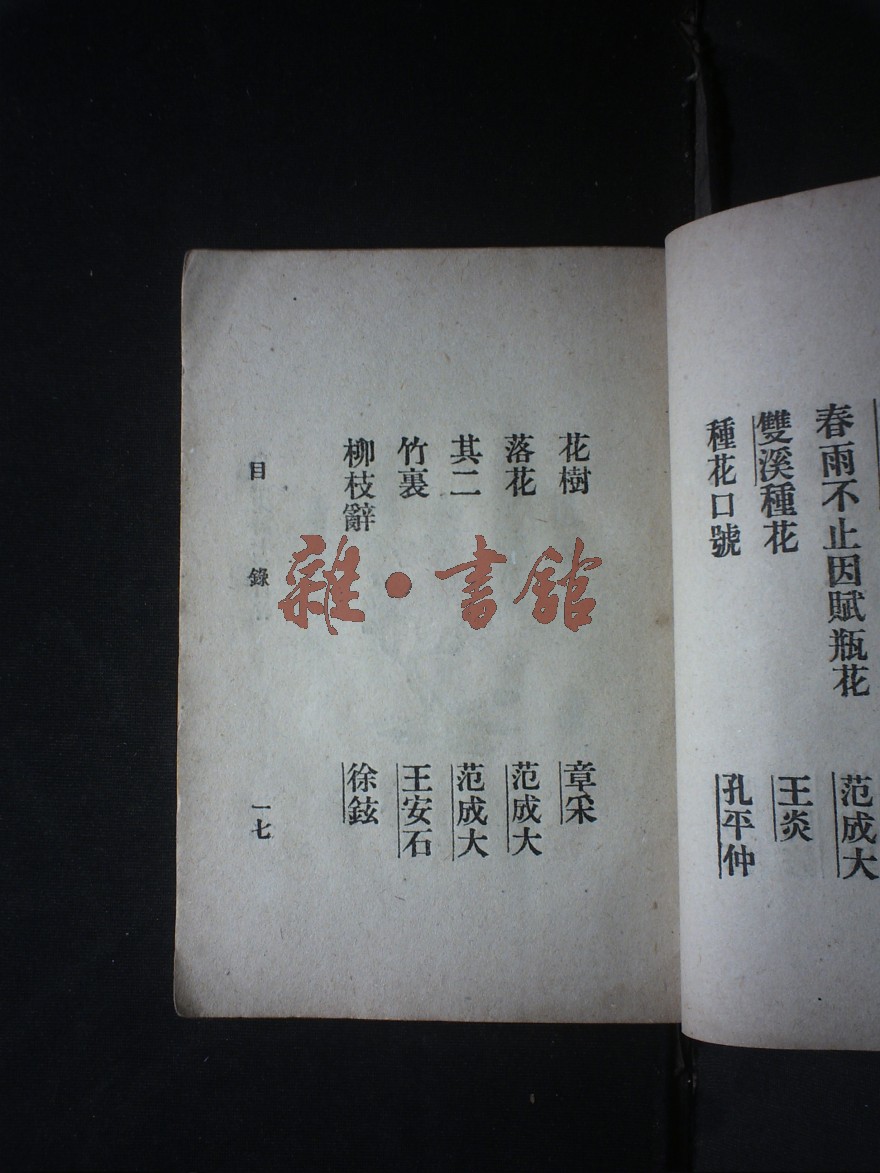 春雨不止因賦瓶花 范成大
雙溪種花 王炎
種花口號 孔平仲
花樹 章采
落花 范成大
其二 范成大
竹裏 王安石
柳枝辭 徐鉉
目錄 一七
雜·書館